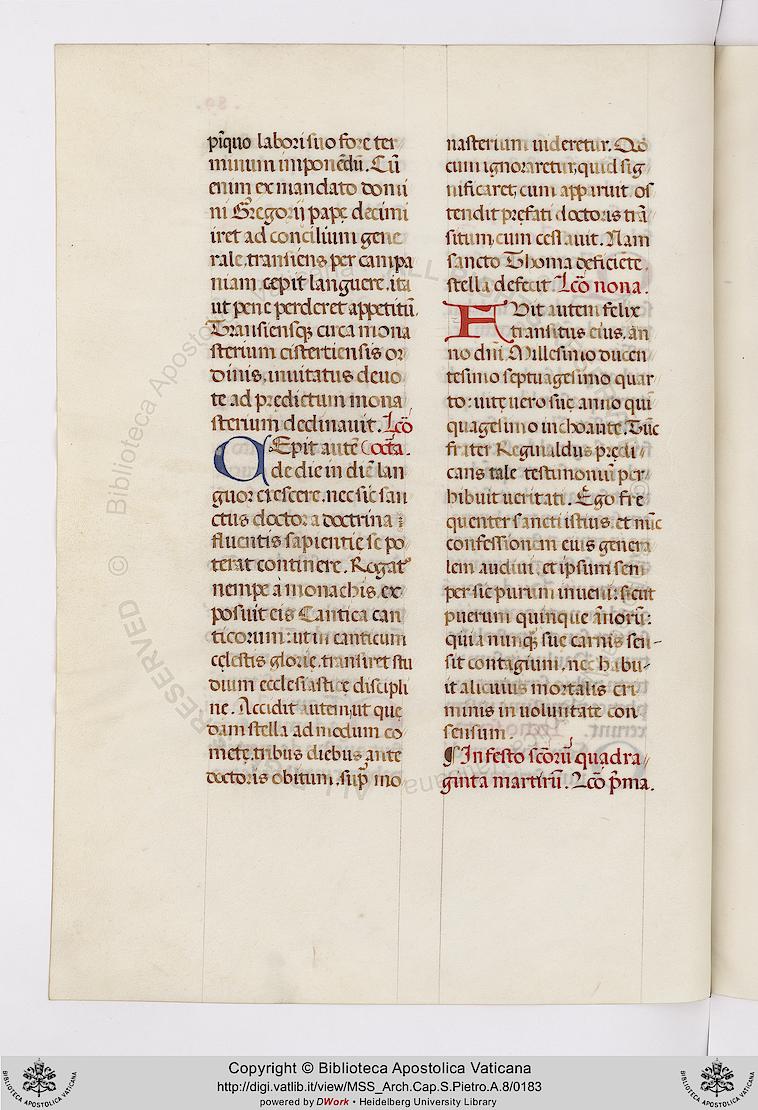 pīquo labori suo fore ter
minum imponēdū. Cū
enim ex mandato domi
ni Gregorij pape decimi
iret ad concilium gene
rale, transiens per campa
niam cepit languere, ita
ut pene perderet appetitū.
Transiensq; circa mona
sterium cisterciensis or
dinis, inuitatus deuo
te ad predictum mona
sterium declinauit. Lcō
CEpit autē octa.
de die in diē lan
guor crescere, nec sic san
ctus doctor a doctrina
fluentis sapientie se po
terat continere. Rogat'
nempe a monachis, ex
posuit eis Cantica can
ticorum: ut in canticum
celestis glorie, transiret stu
dium ecclesiastice discipli
ne. Accidit autem, ut que
dam stella ad modum co
mete, tribus diebus ante
doctoris obitum, sup mo
nasterium uideretur. Qō
cum ignoraretur, quid sig
nificaret, cum apparuit, os
tendit prefati doctoris trā
situm, cum cessauit. Nam
sancto Thoma deficiēte,
stella defecit. Lcō nona.
FVit autem felix
transitus eius, an
no dnī Millesimo ducen
tesimo septuagesimo quar
to: uite uero sue anno quī
quagesimo inchoante. Tūc
frater Reginaldus predi
cans tale testimoniū per
hibuit ueritati. Ego fre
quenter sancti istius, et nūc
confessionem eius genera
lem audiui, et ipsum sem
per sic purum inueni: sicut
puerum quinque ānorū:
quia nunq̄ sue carnis sen-
sit contagium, nec habu-
it alicuius mortalis cri
minis in uoluntate con
sensum.
¶ In festo scōrū quadra
ginta martirū. Lcō pīma.
© Biblioteca Apostolica Vaticana
ALL RIGHTS RESERVED
Copyright © Biblioteca Apostolica Vaticana
http://digi.vatlib.it/view/MSS_Arch.Cap.S.Pietro.A.8/0183
powered by DWork • Heidelberg University Library
BIBLIOTECA APOSTOLICA VATICANA
BIBLIOTECA APOSTOLICA VATICANA